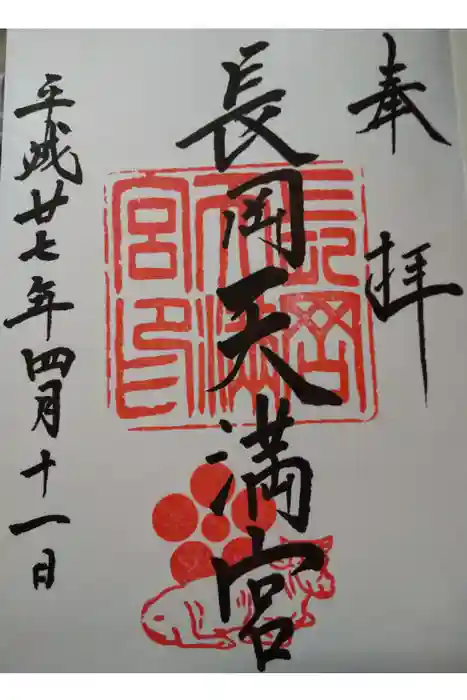 奉拝
長岡天満宮
長岡天満宮印
平成廿七年四月十一日